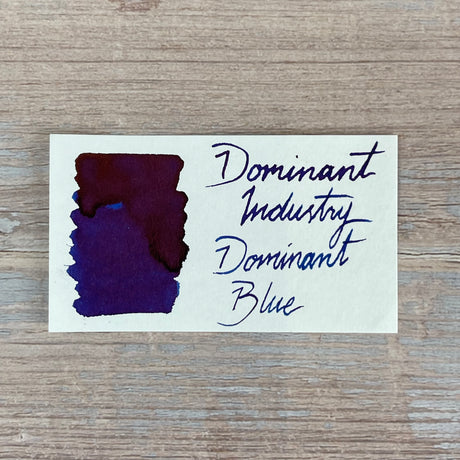 Dominant
Industry
Dominant
Blue